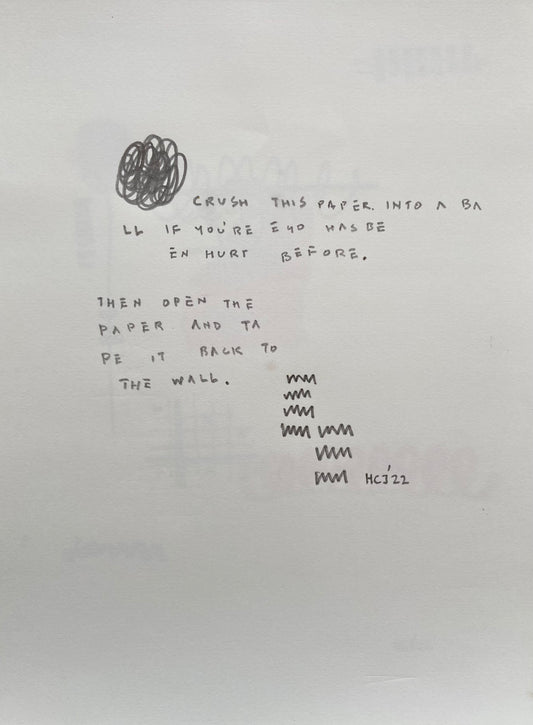 CRUSH THIS PAPER. INTO A BA
LL IF YOU'RE EGO HAS BE
EN HURT BEFORE.
THEN OPEN THE
PAPER AND TA
PE IT BACK TO
THE WALL.
HCJ'22